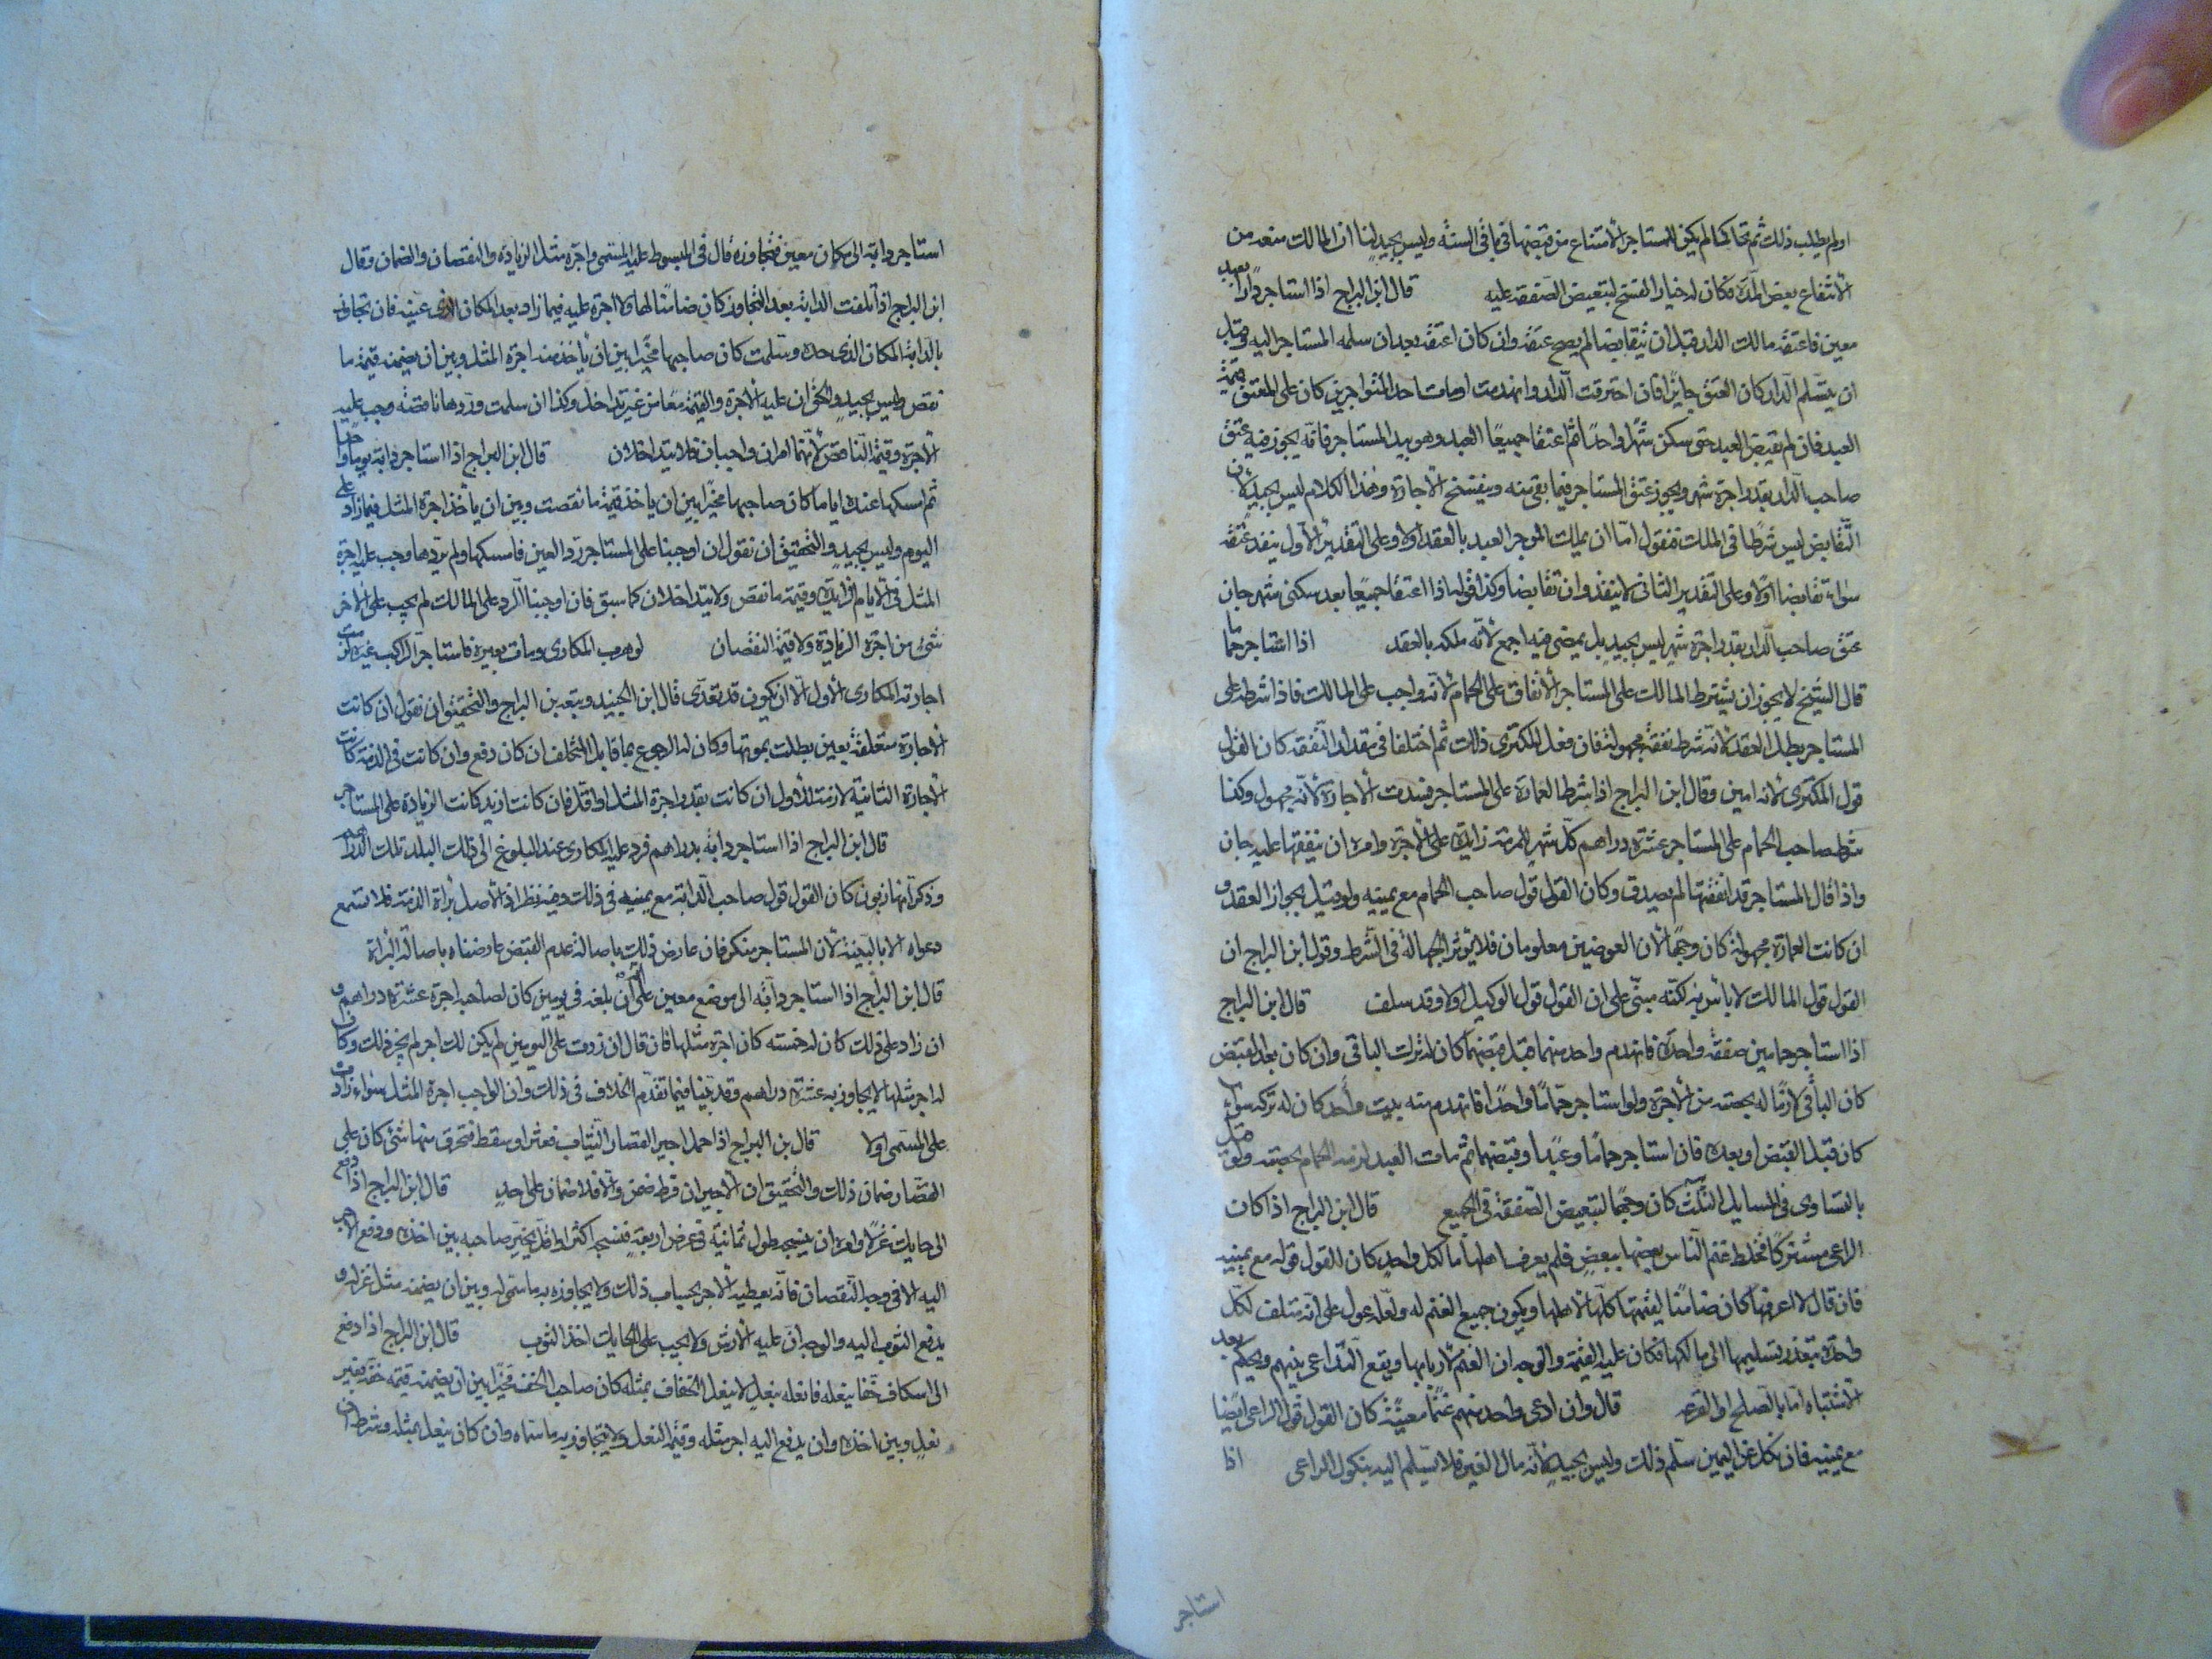 اولم يطلب ذلك ثم تحاكما لم يكن للمستاجر الامتناع من قبضها في باقي السنة وليس بجيد لنا ان المالك منعه من
الانتفاع ببعض المدة فكان له خيار الفسخ لتبعيض الصفقة عليه قال ابن البراج اذا استاجر دارا بعبد
معين فاعتقه مالك الدار قبل ان يتقابضا لم يصح عتقه وان كان اعتقه بعد ان سلمه المستاجر اليه وقبل
ان يتسلم الدار كان العتق جايزا فان احترقت الدار وانهدمت اومات احد المتواجرين كان على المعتق قيمة
العبد فان لم يقبض العبد حتى سكن شهرا واحدا ثم اعتقا جميعا العبد وهو بيد المستاجر فانه يجوز فيه عتق
صاحب الدار بقدر اجرة شهر ويجوز عتق المستاجر فيما بقي منه وينفسخ الاجارة وهذا الكلام ليس بجيد لان
التقابض ليس شرطا في الملك فنقول اما ان يملك الموجر العبد بالعقد اولا وعلى التقدير الاول ينفذ عتقه
سواء تقابضا اولا وعلى التقدير الثاني لا ينفذ وان تقابضا وكذا قوله اذا اعتقا جميعا بعد سكنى شهر جاز
عتق صاحب الدار بقدر اجرة شهر ليس بجيد بل يمضي فيه اجمع لانه ملكه بالعقد اذا استاجر حماما
قال الشيخ لا يجوز ان يشترط المالك على المستاجر الانفاق على الحمام لانه واجب على المالك فاذا شرطه على
المستاجر بطل العقد لانه شرط نفقة مجهولة فان فعل المكتري ذلك ثم اختلفا في مقدار النفقه كان القول
قول المكتري لانه امين وقال ابن البراج اذا شرط العمارة على المستاجر فسدت الاجارة لانه مجهول وكذا
شرط صاحب الحمام على المستاجر عشرة دراهم كل شهر لمرمته زايدة على الاجرة وامره ان ينفقها عليه جاز
واذا قال المستاجر قد انفقتها لم يصدق وكان القول قول صاحب الحمام مع يمينه ولو قيل بجواز العقد و
ان كانت العمارة مجهولة كان وجها لان العوضين معلومان فلا يوثر الجهالة في الشرط وقول ابن البراج ان
القول قول المالك لا باس به لكنه مبني على ان القول قول الوكيل اولا وقد سلف قال ابن البراج
اذا استاجر حمامين صفقة واحدة فانهدم واحد منهما قبل قبضهما كان له ترك الباقي وان كان بعد القبض
كان الباقي لازما له بحصته من الاجرة ولو استاجر حماما واحدا فانهدم منه بيت واحد كان له تركه سواء
كان قبل القبض او بعده فان استاجر حماما وعبدا وقبضهما ثم مات العبد لزمه الحمام بحصته ولو قيل
بالتساوي في المسايل الثلث كان وجها لتبعيض الصفقة في الجميع قال ابن البراج اذا كان
الراعي مشتركا فخلط غنم الناس بعضها ببعض فلم يعرف اهلها ما لكل واحد كان للقول قوله مع يمينه
فان قال لا اعرفها كان ضامنا لقيمتها كلها لاهلها ويكون جميع الغنم له ولعله عول على انه متلف لكل
واحدة بتعذر تسليمها الى مالكها فكان عليه القيمة والوجه ان الغنم لاربابها ويقع التداعي بينهم ويحكم بعد
الاشتباه اما بالصلح او القرعه قال وان ادعى واحد منهم غنما معينة كان القول قول الراعي ايضا
مع يمينه فان نكل عن اليمين سلم ذلك وليس بجيد لانه مال الغير فلا يتسلم اليه بنكول الراعي اذا
استاجر
استاجر دابة الى مكان معين فتجاوزه قال في المبسوط عليه المسمى واجرة مثل الزيادة والنقصان والضمان وقال
ابن البراج اذا تلفت الدابة بعد التجاوز كان ضامنا لها ولا اجرة عليه فيما زاد بعد المكان الذي عينه فان تجاوز
بالدابة المكان الذي حده وسلمت كان صاحبها مخيرا بين ان يأخذ منه اجرة المثل وبين ان يضمنه قيمة ما
نقص وليس بجيد والحق ان عليه الاجرة والقيمة معا من غير تداخل وكذا ان سلمت وردها ناقصة وجب عليه
الاجرة وقيمة الناقص لانهما امران واجبان فلا يتداخلان قال ابن البراج اذا استاجر دابة يوما واحدا
ثم امسكها عنده اياما كان صاحبها مخيرا بين ان ياخذ قيمة ما نقصت وبين ان ياخذ اجرة المثل فيما زاد على
اليوم وليس بجيد والتحقيق ان نقول ان اوجبنا على المستاجر رد العين فامسكها ولم يردها وجب عليه اجرة
المثل في الايام الزايدة وقيمة ما نقص ولا يتداخلان كما سبق فان اوجبنا الرد على المالك لم يجب على الاخر
شئ من اجرة الزيادة ولا قيمة النقصان لو هرب المكاري ومات بعيره فاستاجر الراكب غيره لزمت
اجارته المكاري الاول الا ان يكون قد تعدى قال ابن الجنيد وتبعه بن البراج والتحقيق ان نقول ان كانت
الاجارة متعلقة بعين بطلت بموتها وكان له الرجوع بما قابل المتخلف ان كان دفع وان كانت في الذمة كانت
الاجارة الثانية لازمة للاول ان كانت بقدر اجرة المثل او اقل فان كانت ازيد كانت الزيادة على المستاجر
قال ابن البراج اذا استاجر دابة بدراهم فرد عليه المكاري عند البلوغ الى ذلك البلد تلك الدراهم
وذكر انها زيوف كان القول قول صاحب الدابة مع يمينه في ذلك وفيه نظر اذ الاصل براة الذمة فلا تسمع
دعواه الا بالبينة لان المستاجر منكر فان عارض ذلك باصالة عدم القبض عارضناه باصالة البراة
قال ابن البراج اذا استاجر دابة الى موضع معين على انه ان بلغه في يومين كان لصاحبه اجرة عشرة دراهم و
ان زاد على ذلك كان له خمسة كان اجرة مثلها فان قال ان زدت على اليومين لم يكن لك اجر لم يجز ذلك وكان
له اجر مثلها لا يجاوز به عشرة دراهم وقد بينا فيما تقدم الخلاف في ذلك وان الواجب اجرة المثل سواء زادت
على المسمى اولا قال بن البراج اذا حمل اجير القصار الثياب فعثر او سقط فتحرق منها شئ كان على
القصار ضمان ذلك والتحقيق ان الاجير ان فرط ضمن والا فلا ضمان على احد قال ابن البراج اذا دفع
الى حايك غزلا وامره ان ينسجه طول ثمانية في عرض اربعة فنسجه اكثر او اقل يخير صاحبه بين اخذه ودفع الاجر
اليه الا في وجه النقصان فانه يعطيه الاجر بحساب ذلك ولا يجاوزه به ما سمى له وبين ان يضمنه مثل غزله و
يدفع الثوب اليه والوجه ان عليه الارش ولا يجب على الحايك اخذ الثوب قال ابن البراج اذا دفع
الى اسكاف خفا ينعله فانعله بنعل لا ينعل الخفاف بمثله كان صاحب الخف مخيرا بين ان يضمنه قيمة خفه بغير
نعل وبين اخذه وان يدفع اليه اجر مثله وقيمة النعل ولا يتجاوز به ما سماه وان كان ينعل بمثله وشرط ان